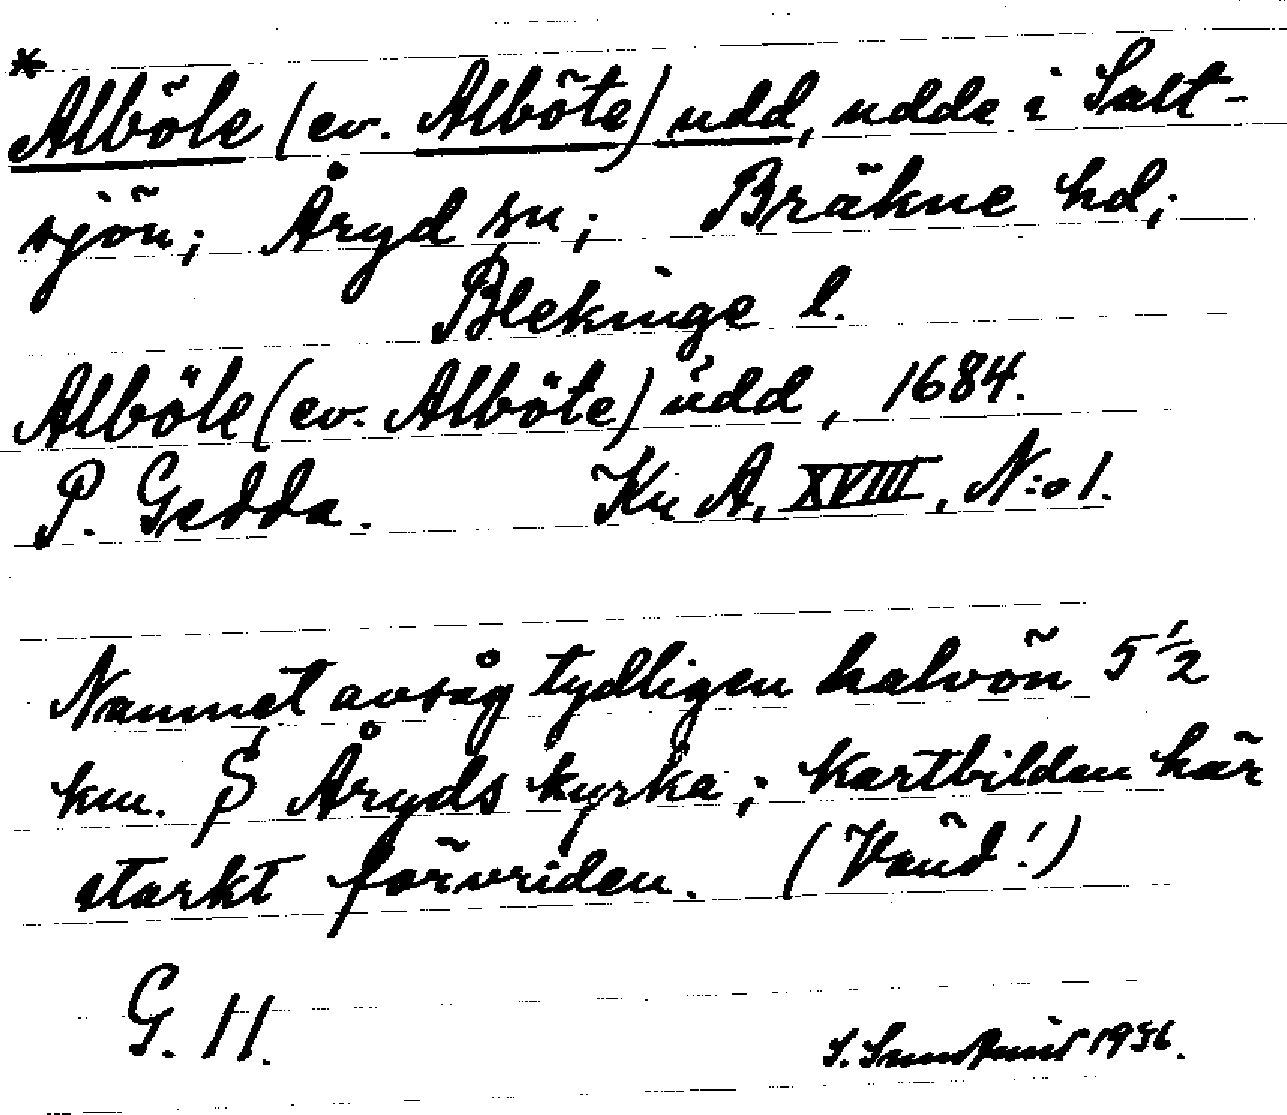 *
Alböle (ev. Alböte) udd, udde i Salt-
sjön; Åryd sn; Bräkne hd;
Blekinge l.
Alböle (ev. Alböte) udd, 1684.
P. Gedda. Kr A, XVIII, N:o 1.
Namnet avsåg tydligen halvön 5 1/2
km. S Åryds kyrka; kartbilden här
starkt förvriden. (Vänd!)
G. H.
S. 1936.